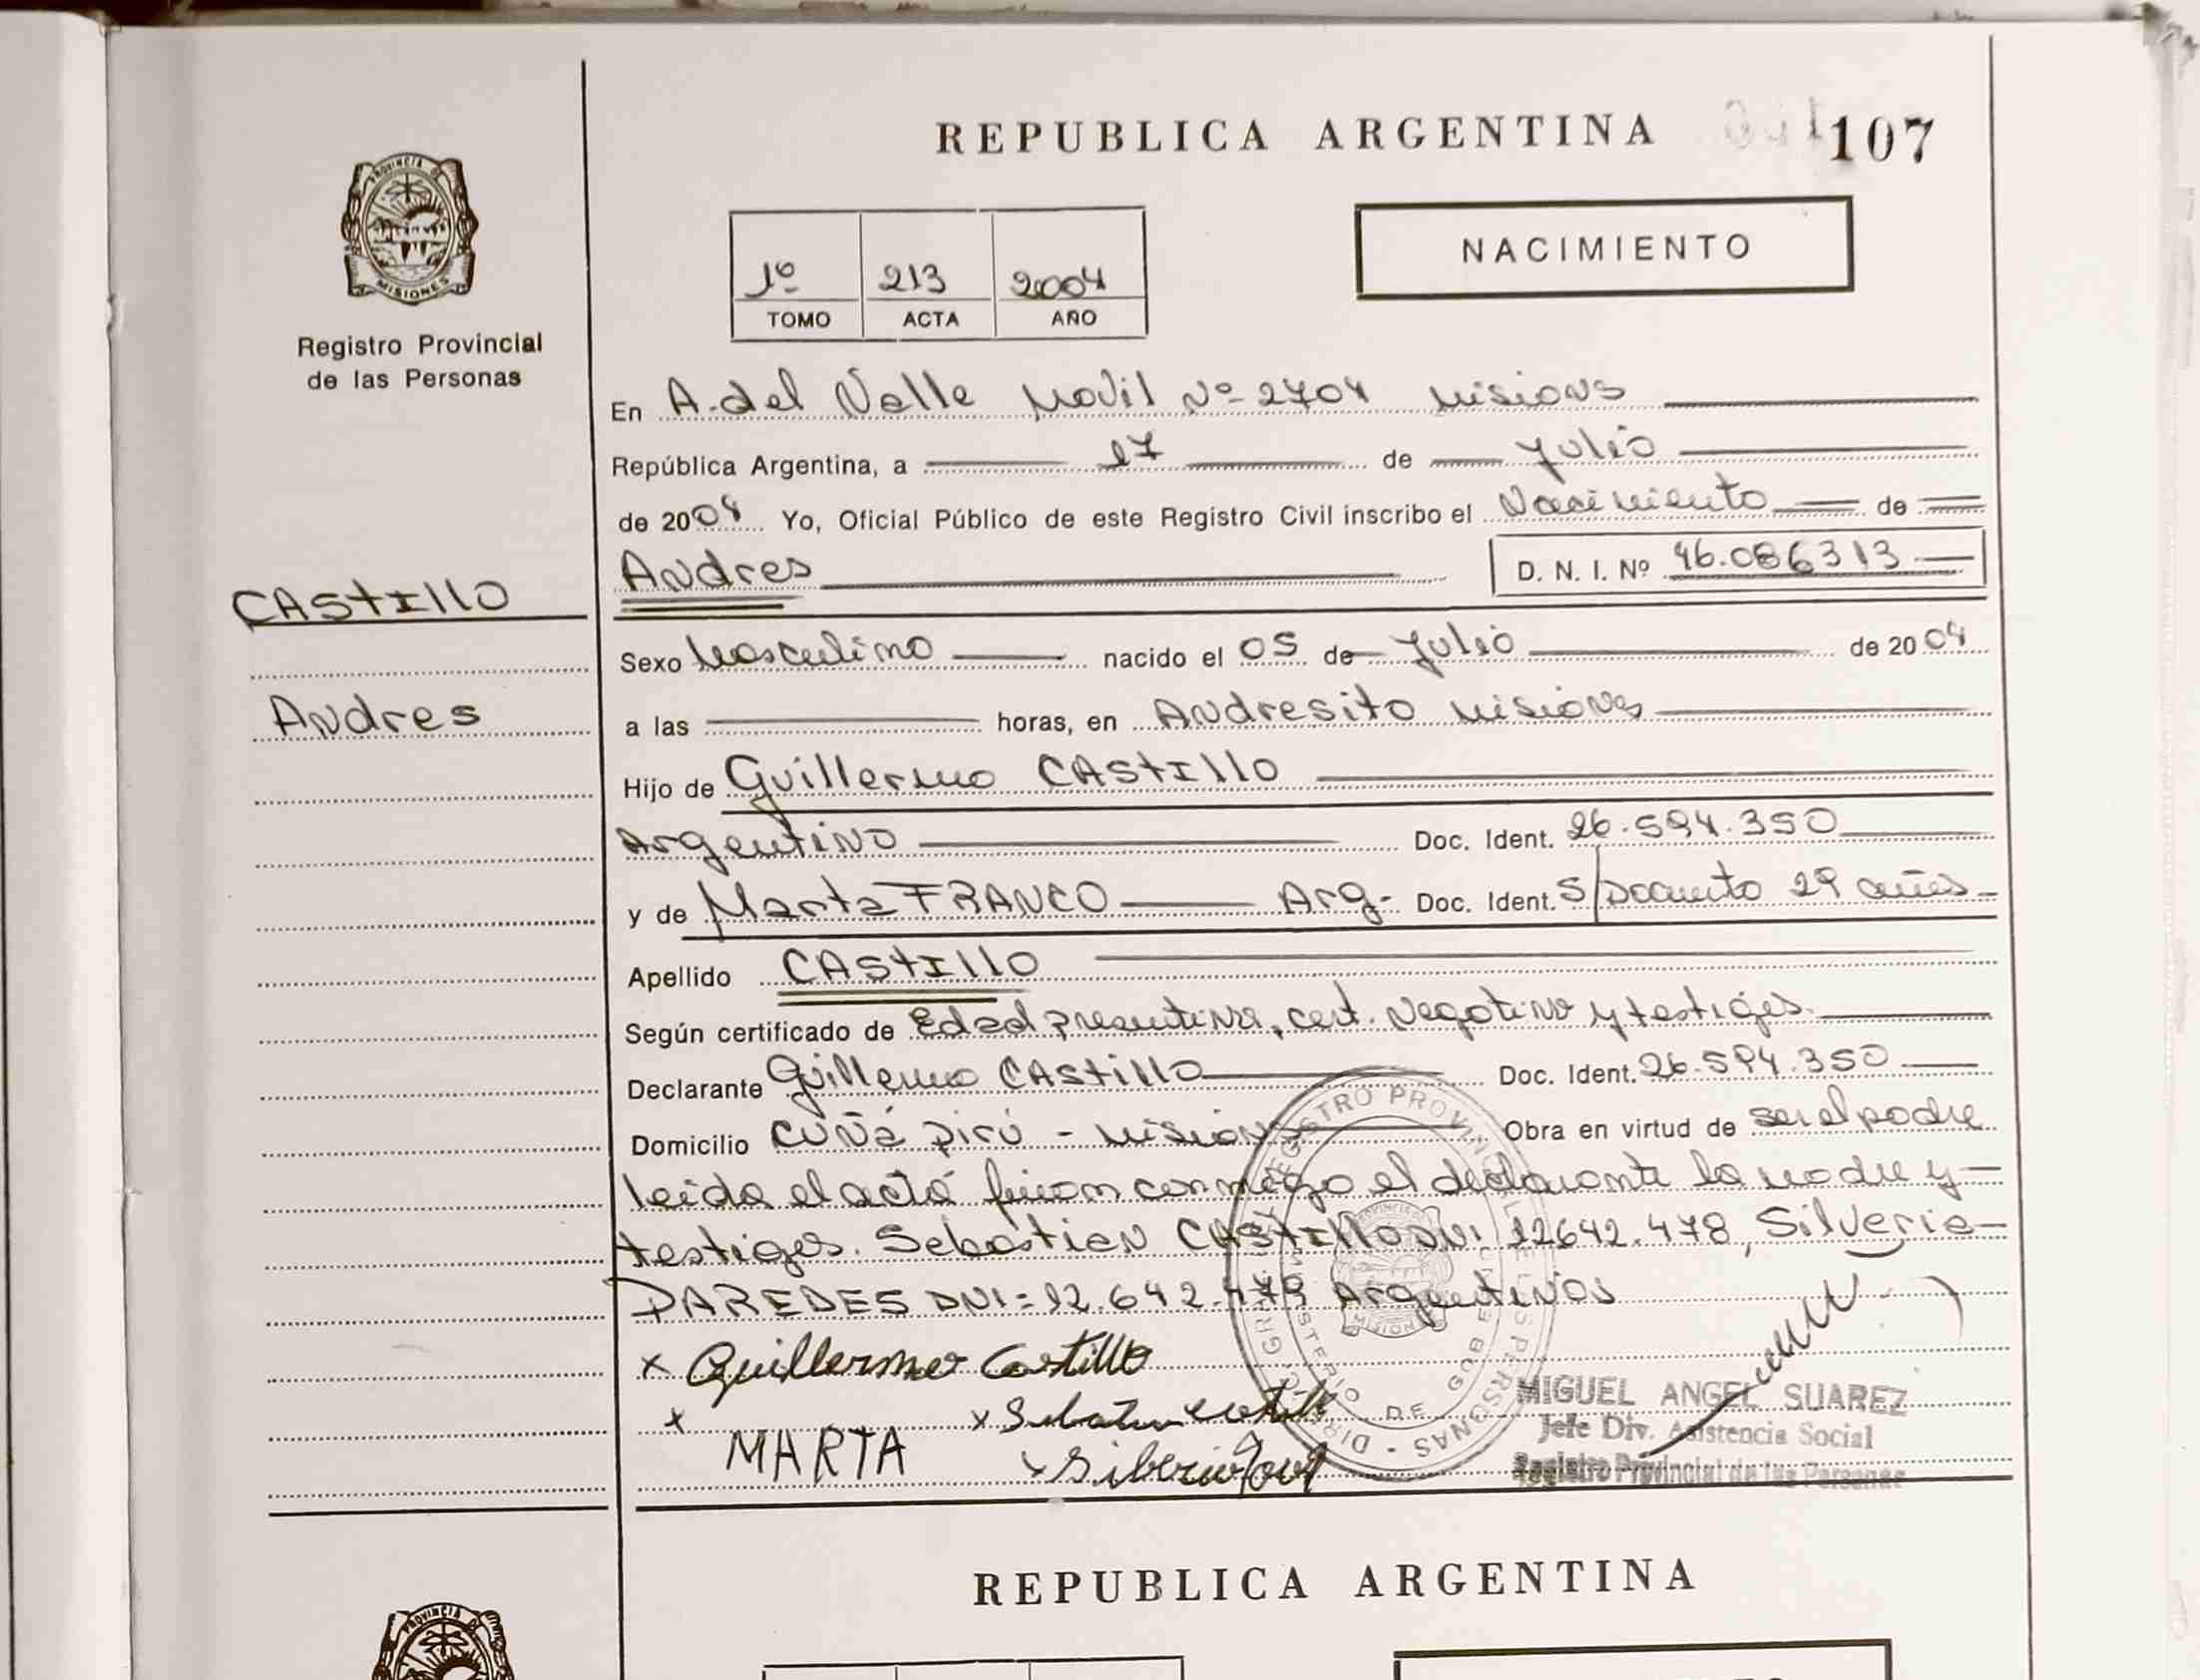 REPUBLICA ARGENTINA
107
PROVINCIA DE
MISIONES
Registro Provincial
de las Personas
1º 213 2004
TOMO ACTA AÑO
NACIMIENTO
En A. del Valle Movil Nº 2704 Misions
República Argentina, a 17 de Julio
de 2004 Yo, Oficial Público de este Registro Civil inscribo el Nacimiento de
CASTILLO
Andres
Andres D. N. I. Nº 46.086313
Sexo Masculino nacido el 05 de Julio de 2004
a las horas, en Andresito Misiones
Hijo de Guillermo CASTILLO
Argentino Doc. Ident. 26.594.350
y de Marta FRANCO Arg- Doc. Ident. S/Docuento 29 años
Apellido CASTILLO
Según certificado de Edad presuntiva, cert. Negativo y testigos.
Declarante Guillermo CASTILLO Doc. Ident. 26.594.350
Domicilio CUÑá Pirú - Misiones Obra en virtud de ser el padre
leida el acta firman conmigo el declarante la madre y
testigos. Sebastian CASTILLO DNI 12642.478, Silverio
PAREDES DNI: 12.642.479 Argentinos
x Guillermo Castillo
x x
MARTA x
MIGUEL ANGEL SUAREZ
Jefe Div. Asistencia Social
Registro Provincial de las Personas
REPUBLICA ARGENTINA
PROVINCIA